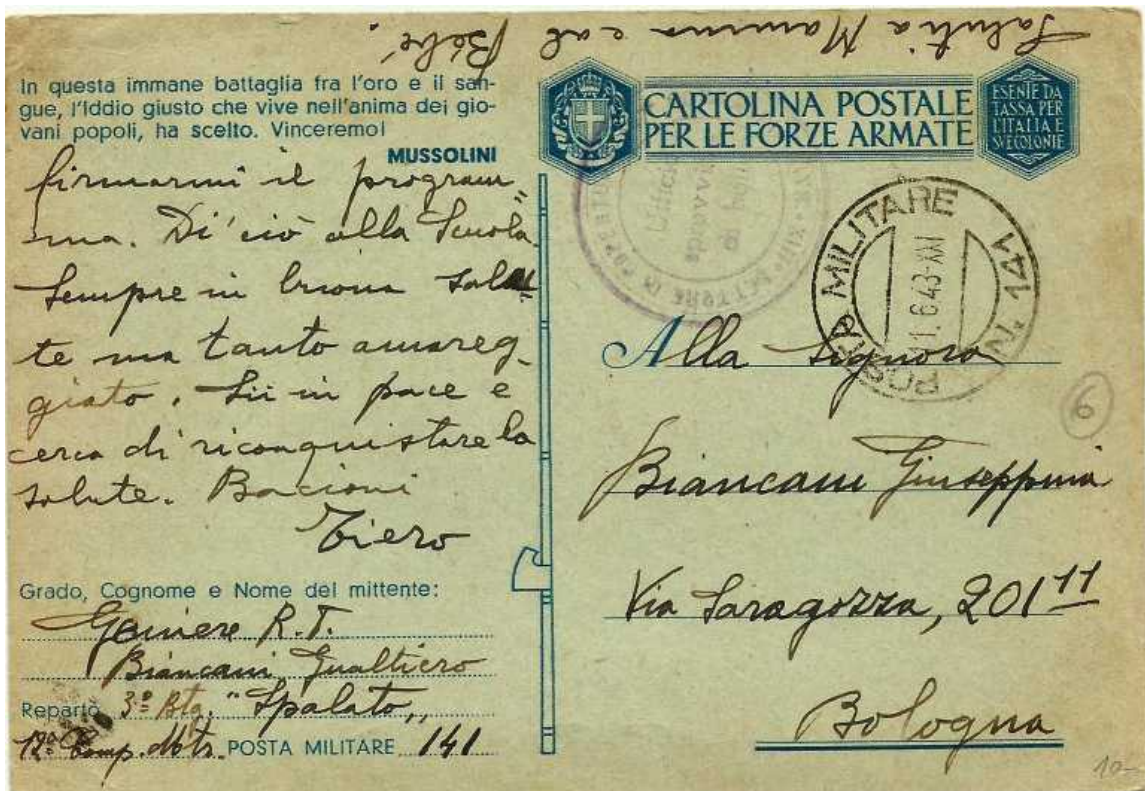 Saluti a Mamma e al
Bébé.
In questa immane battaglia fra l'oro e il san-
gue, l'Iddio giusto che vive nell'anima dei gio-
vani popoli, ha scelto. Vinceremo!
MUSSOLINI
firmarmi il program„
ma. Di' ciò alla Scuola.
Sempre in buona salu„
te ma tanto amareg„
giato. Sii in pace e
cerca di riconquistare la
salute. Bacioni
Tiero
Grado, Cognome e Nome del mittente:
Geniere R.T.
Biancani Gualtiero
Reparto 3º Btg. "Spalato„
12ª Comp. Mtr. POSTA MILITARE 141
CARTOLINA POSTALE
PER LE FORZE ARMATE
ESENTE DA
TASSA PER
L'ITALIA E
SUE COLONIE
POSTA MILITARE N. 141
11.6.43-XXI
Alla Signora
Biancani Giuseppina
Via Saragozza, 201 11
Bologna
6
10-